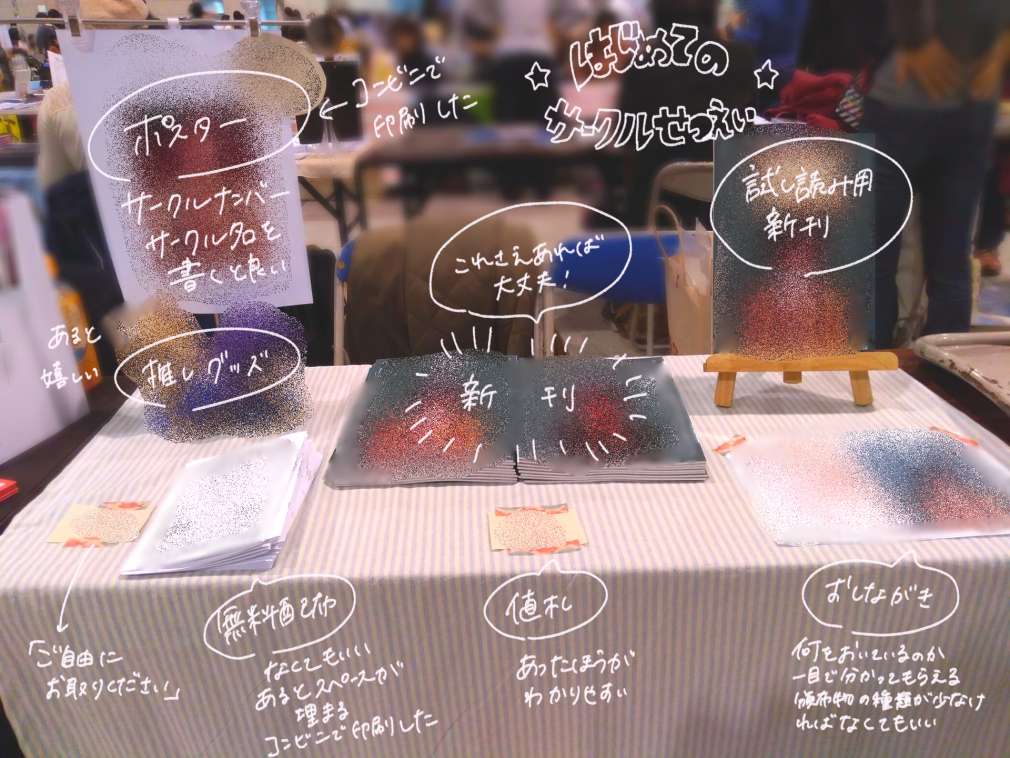 はじめての
サークルせつえい
ポスター
← コンビニで
印刷した
サークルナンバー
サークル名を
書くと良い
試し読み用
新刊
これさえあれば
大丈夫!
あると
嬉しい
推しグッズ
新刊
「ご自由に
お取りください」
無料配布
なくてもいい
あるとスペースが
埋まる
コンビニで印刷した
値札
あったほうが
わかりやすい
おしながき
何をおいているのか
一目で分かってもらえる
頒布物の種類が少なけ
ればなくてもいい